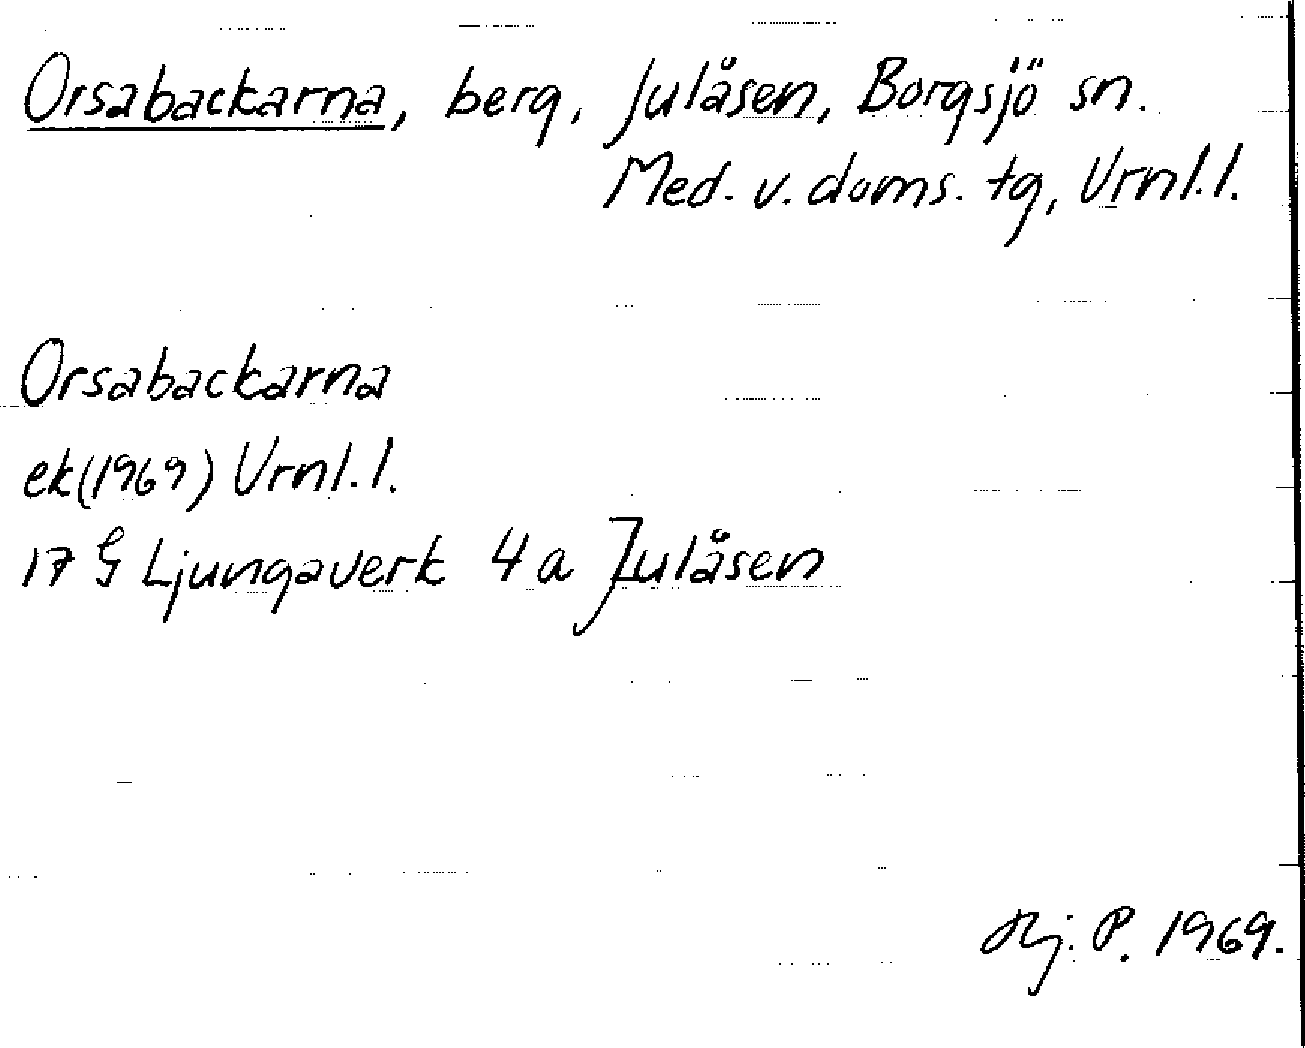 Orsabackarna, berg, Julåsen, Borgsjö sn.
Med. v. doms. tg, Vrnl. l.
Orsabackarna
ek (1969) Vrnl. l.
17 G Ljungaverk 4 a Julåsen
Hj. P. 1969.